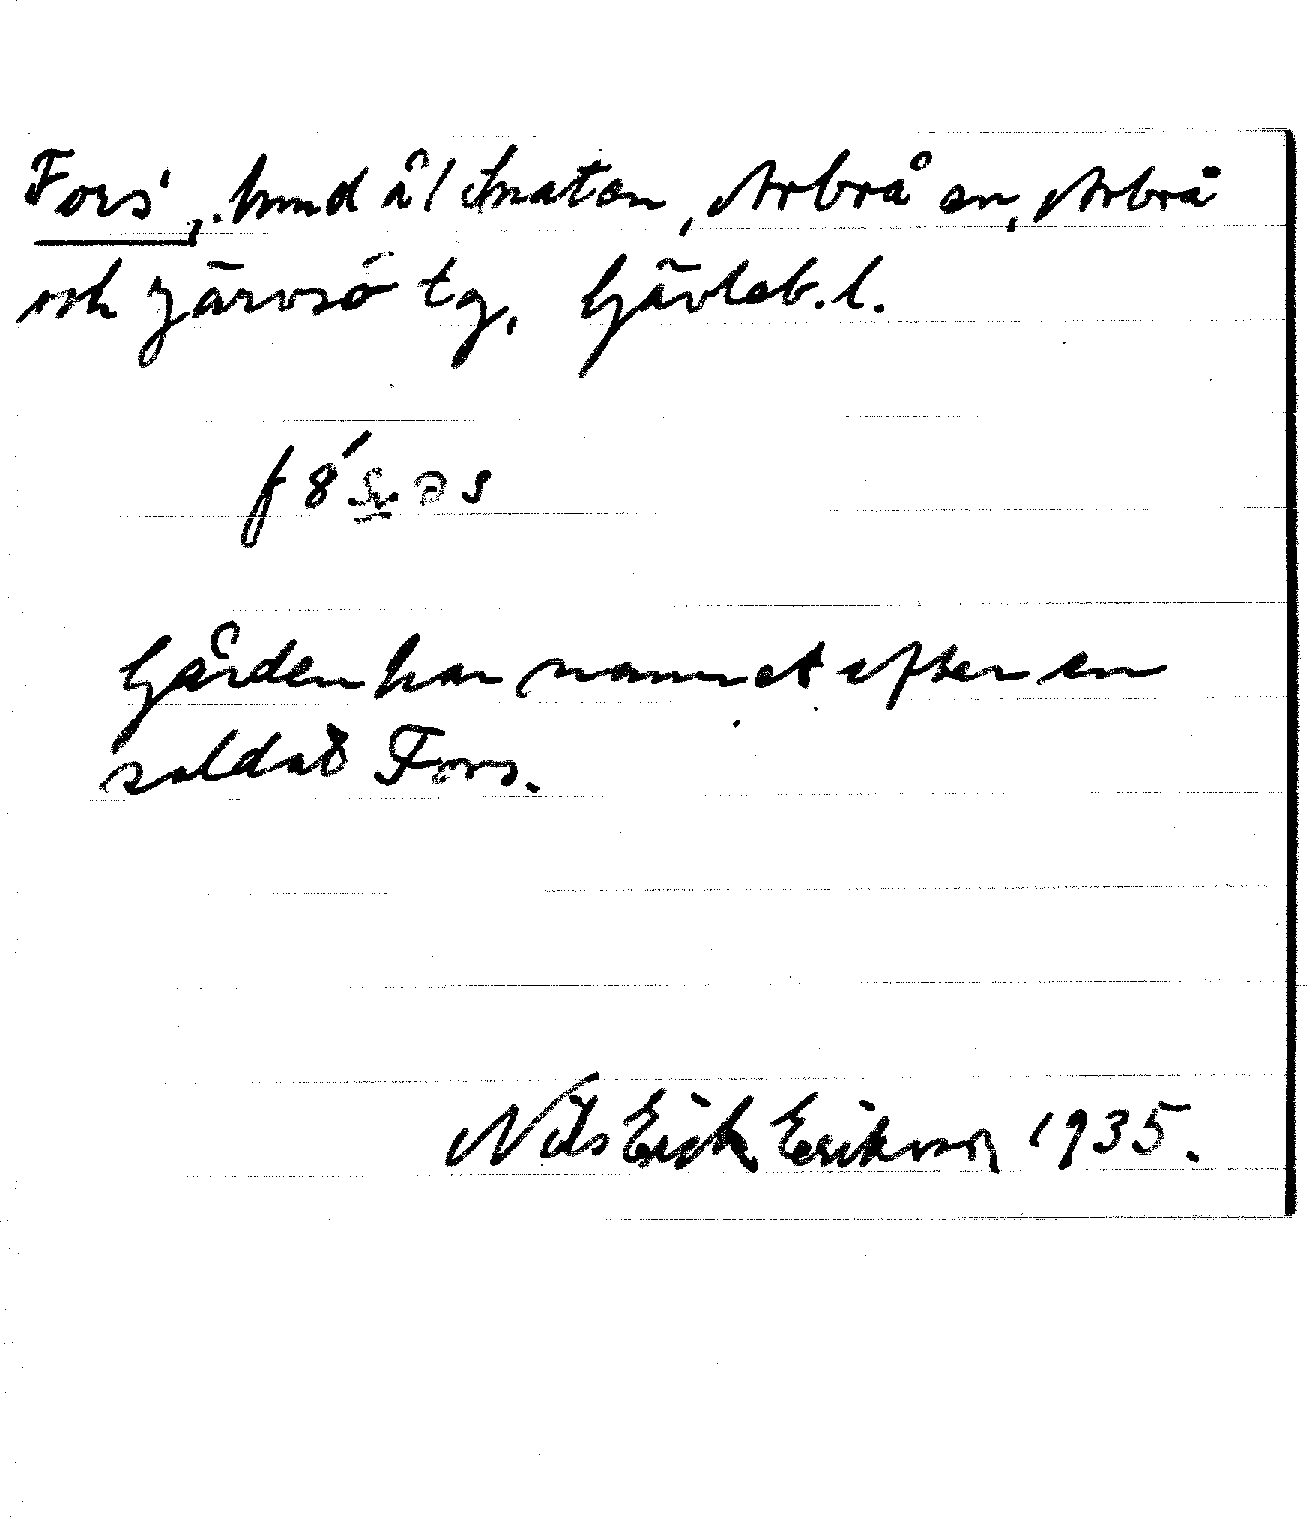 Fors, hmd å / Smaten, Arbrå sn, Arbrå
och Järvsö tg, Gävleb. l.
Gården har namnet efter en
soldat Fors.
Nils Erick Erikson 1935.